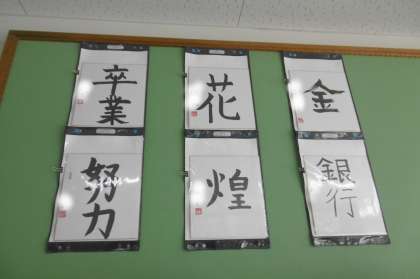 卒業
花
金
努力
煌
銀行